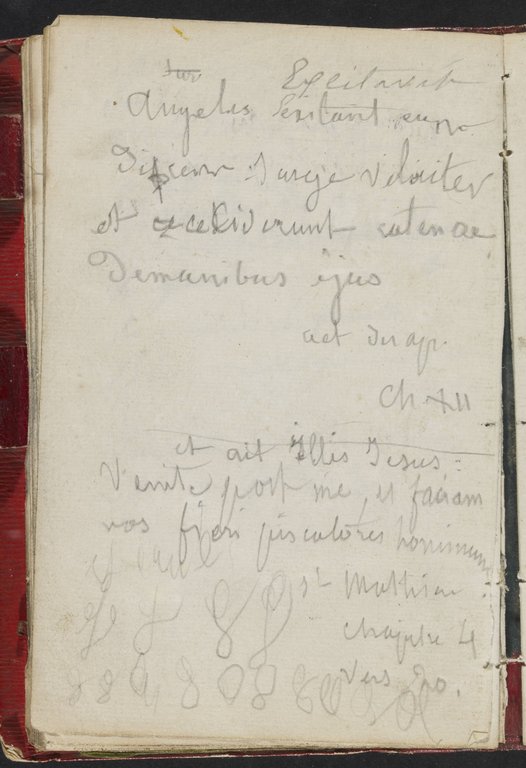 Excitavit
Angelus Exitavit eum
Dicens: Surge velociter
et ceciderunt catenae
Demanibus ejus
act des ap.
Ch XII
et ait illis Jesus:
Venite post me et faciam
vos fieri piscatores hominum
St Mathieu
chapitre 4
vers 20.